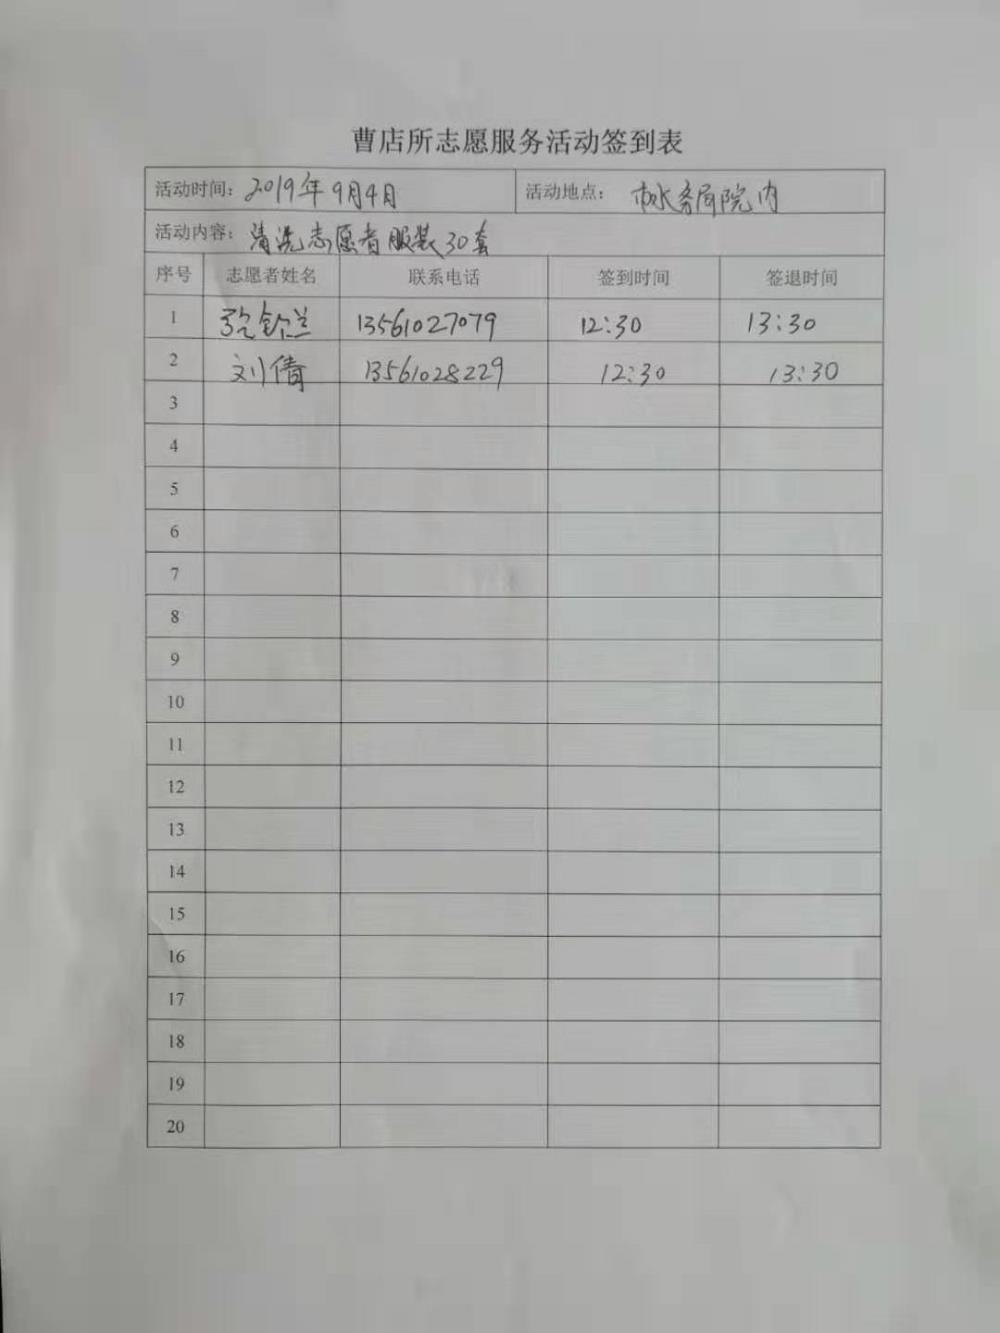 曹店所志愿服务活动签到表
活动时间：2019年9月4日 活动地点：市水务局院内
活动内容：清洗志愿者服装30套
序号 志愿者姓名 联系电话 签到时间 签退时间
1 兰 13561027079 12:30 13:30
2 刘倩 13561028229 12:30 13:30
3
4
5
6
7
8
9
10
11
12
13
14
15
16
17
18
19
20